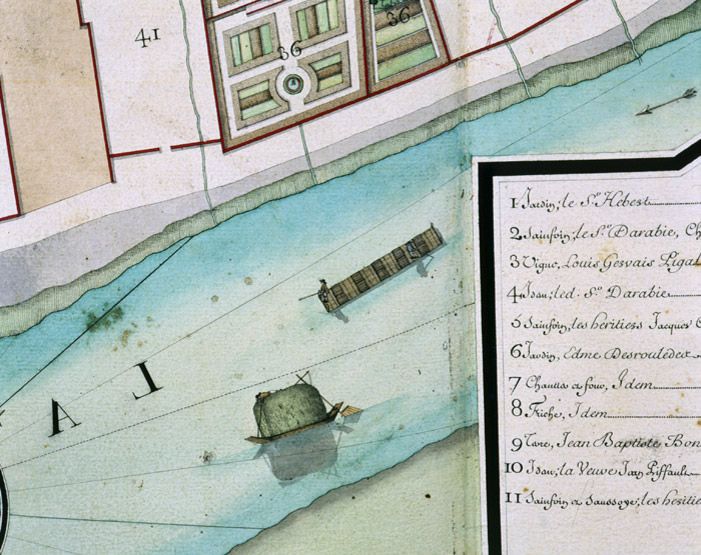 41
36
36
A T
1 Jardin, le Sr. Hebert
2 Sainfoin, le Sr. Darabie, Ch
3 Vigne, Louis Gervais Pigal
4 Idem, led. Sr. Darabie
5 Sainfoin, les heritiers Jacques
6 Jardin, Edme Desrouledes
7 Chantier a four, Idem
8 Friche, Idem
9 Terre, Jean Baptiste Bon
10 Idem, la Veuve Jean Piffault
11 Sainfoin et Saussoye, les heritie